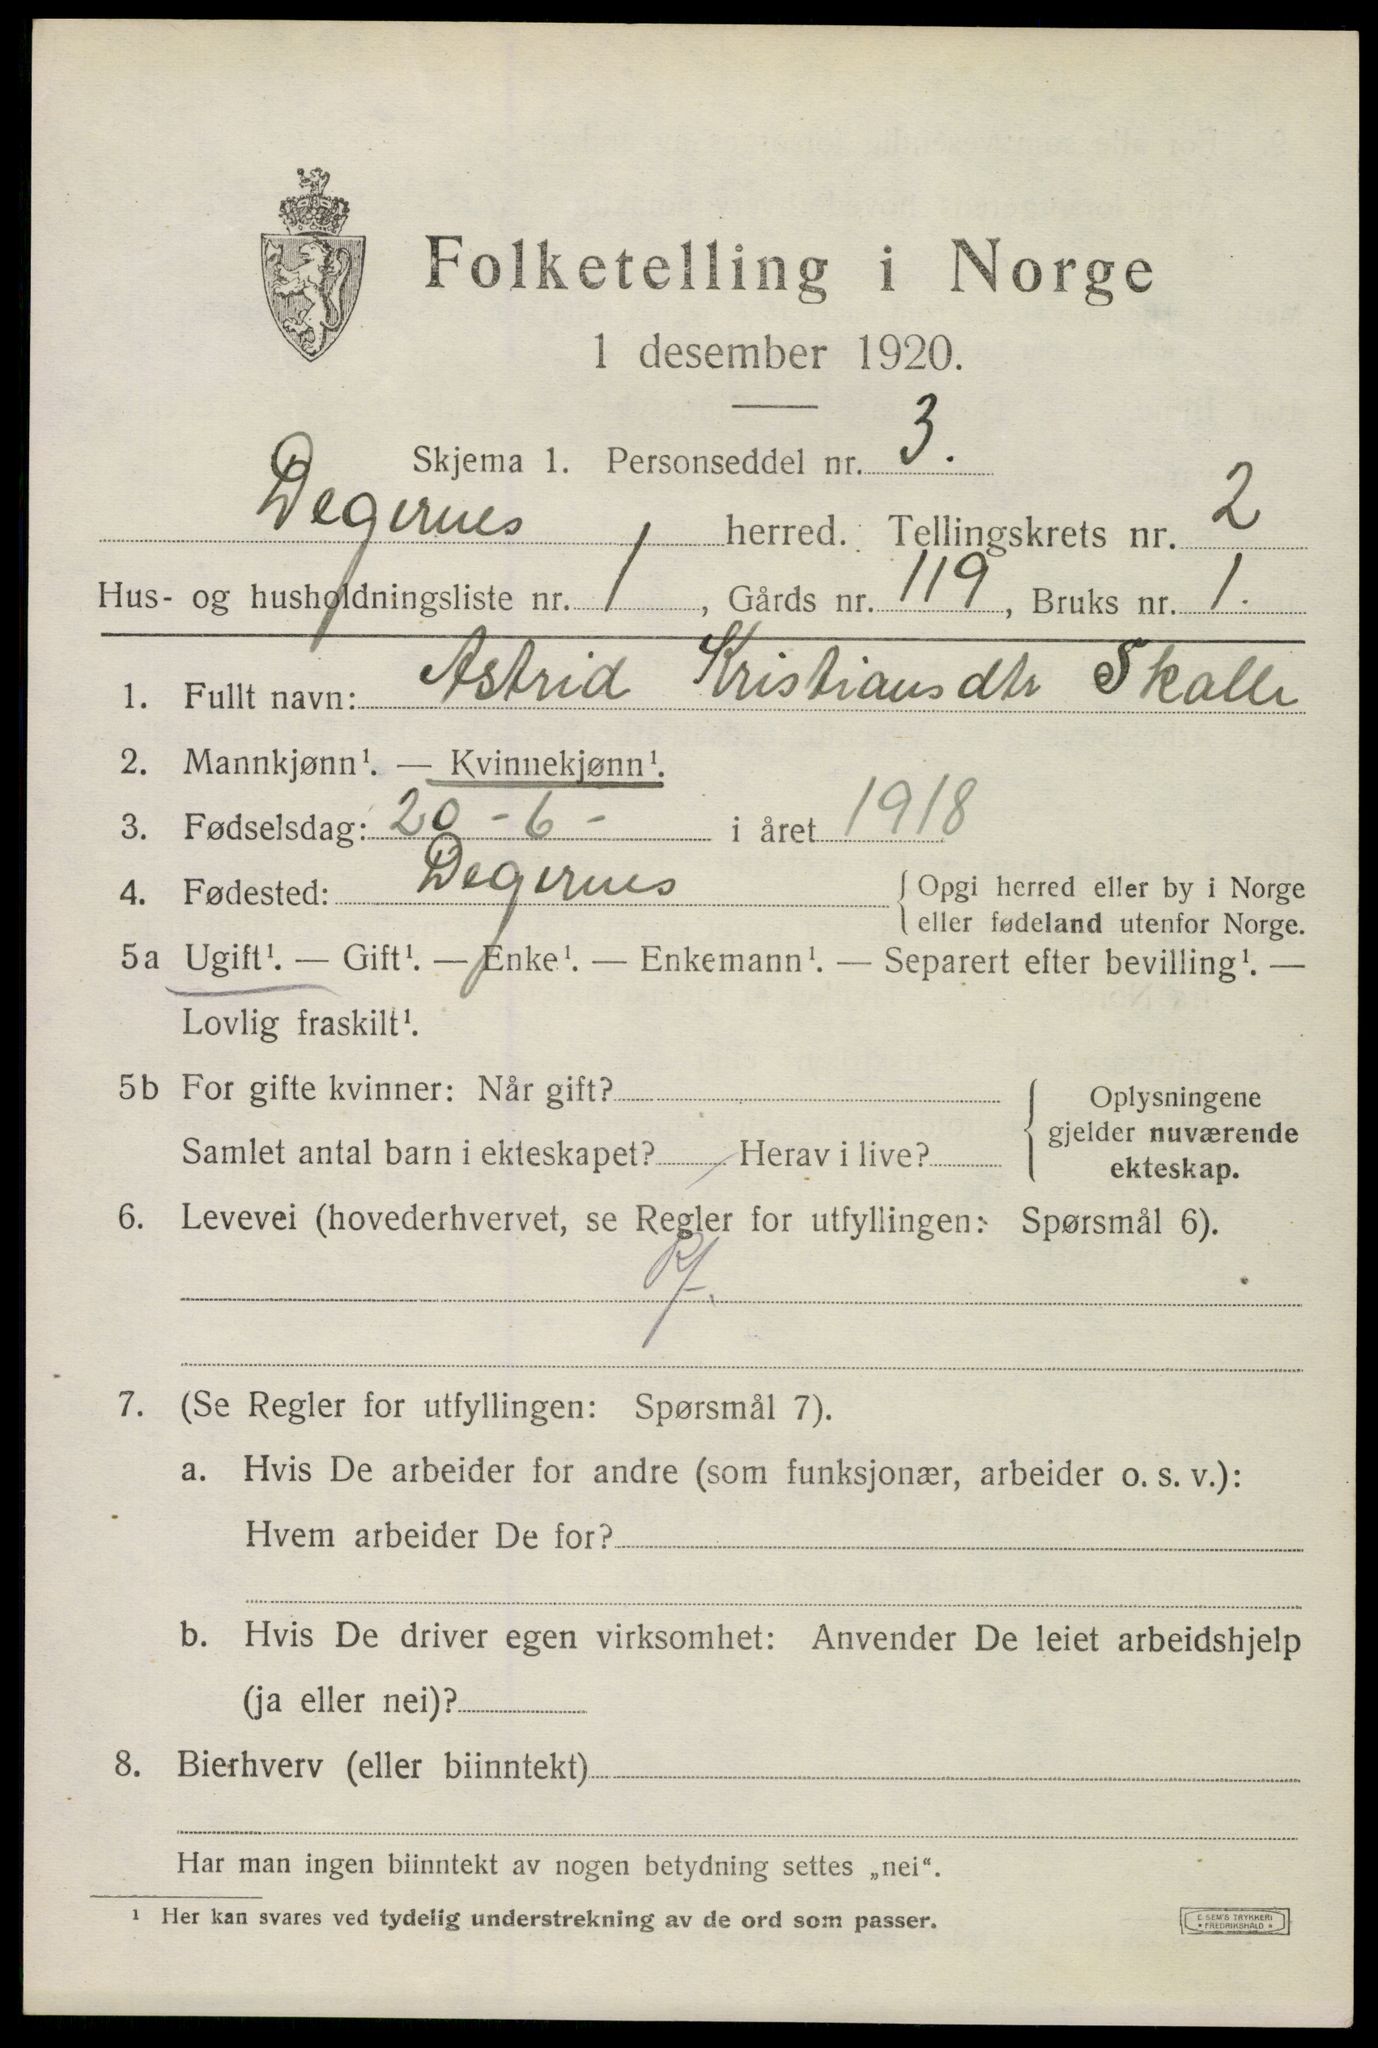 Folketelling i Norge
1 desember 1920.
Skjema 1. Personseddel nr. 3.
Degernes herred. Tellingskrets nr. 2
Hus- og husholdningsliste nr. 1, Gårds nr. 119, Bruks nr. 1.
1. Fullt navn: Astrid Kristiansdtr
2. Mannkjønn¹. — Kvinnekjønn¹.
3. Fødselsdag: 20 - 6 - i året 1918
4. Fødested: Degernes { Opgi herred eller by i Norge
eller fødeland utenfor Norge.
5a Ugift¹. — Gift¹. — Enke¹. — Enkemann¹. — Separert efter bevilling¹. —
Lovlig fraskilt¹.
5b For gifte kvinner: Når gift?
Samlet antal barn i ekteskapet? Herav i live?
{ Oplysningene
gjelder nuværende
ekteskap.
6. Levevei (hovederhvervet, se Regler for utfyllingen: Spørsmål 6).
7. (Se Regler for utfyllingen: Spørsmål 7).
a. Hvis De arbeider for andre (som funksjonær, arbeider o. s. v.):
Hvem arbeider De for?
b. Hvis De driver egen virksomhet: Anvender De leiet arbeidshjelp
(ja eller nei)?
8. Bierhverv (eller biinntekt)
Har man ingen biinntekt av nogen betydning settes „nei“.
¹ Her kan svares ved tydelig understrekning av de ord som passer.
E. SEM'S TRYKKERI
* FREDRIKSHALD *